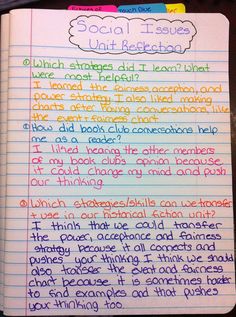 Touch Clue
Social Issues
Unit Reflection
① Which strateges did I learn? What
were most helpful?
I learned the fairness, acception, and
power strategy. I also liked making
charts after having conversations, like
the event + fairness chart.
② How did book club conversations help
me as a reader?
I liked hearing the other members
of my book clubs opnion because
it could change my mind and push
our thinking.
③ Which strategies/skills can we transfer
+ use in our historical fiction unit?
I think that we could transfer
the power, acceptance and fairness
strategy because it all connects and
pushes your thinking. I think we should
also transfer the event and fairness
chart because it is sometimes harder
to find examples and that pushes
your thinking too.